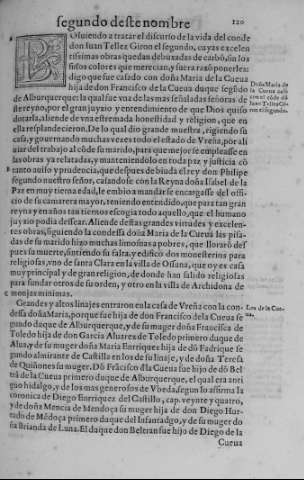 segundo deste nombre
120
Osuiendo a tratar el discurso de la vida del conde
don Iuan Tellez Giron el segundo, cuyas excelen
tissimas obras quedan debuxadas de carbõ, sin los
finos colores que merecian, y fuera razõ ponerles:
digo que fue casado con doña Maria de la Cueua
hija de don Francisco de la Cueua duque segũdo
de Alburquerque: la qual fue vna de las mas señaladas señoras de
Doña Ma
ria de la Cueua casò
con el cõde dõ
Iuan Tellez
el segundo.
este reyno, por el gran juyzio y entendimiento de que Dios quiso
dotarla, aliende de vna estremada honestidad y religion, que en
ella resplandecieron. De lo qual dio grande muestra, rigiendo su
casa, y gouernando muchas vezes todo el estado de Vreña, por ali
uiar del trabajo al cõde su marido, para que mejor se empleasse en
las obras ya relatadas, y manteniendolo en toda paz y justicia cõ
tanto auiso y prudencia, que despues de biuda el rey don Philipe
segundo nuestro señor, casandose con la Reyna doña Isabel de la
Paz en muy tierna edad, le embio a mandar se encargasse del offi-
cio de su camarera mayor, teniendo entendido, que para tan gran
reyna y en años tan tiernos escogia todo aquello, que el humano
juyzio podia dessear. Aliende destas grandes virtudes y excelen-
tes obras, siguiendo la condessa doña Maria de la Cueua las pisa
das de su marido hizo muchas limosnas a pobres, que lloraron des
pues su muerte, sintiendo su falta, y edificò dos monesterios para
religiosas, vno de santa Clara en la villa de Ossuna, que oy es casa
muy principal y de gran religion, de donde han salido religiosas
para fundar otros de su orden, y otro en la villa de Archidona de
monjas minimas.
Grandes y altos linajes entraron en la casa de Vreña con la con
dessa doña Maria, porque fue hija de don Francisco dela Cueua se
Los de la Cue
ua.
gundo duque de Alburquerque, y de su muger doña Francisca de
Toledo hija de don Garcia Aluarez de Toledo primero duque de
Alua, y de su muger doña Maria Enrriquez hija de dõ Fadrique se
gundo almirante de Castilla en los de su linaje, y de doña Teresa
de Quiñones su muger. Dõ Frãcisco dla Cueua fue hijo de dõ Bel
trã de la Cueua primero duque de Alburquerque, el qual era anti
guo hidalgo, y de los mas generosos de Vbeda, segun lo affirma la
coronica de Diego Enrriquez del Castillo, cap. veynte y quatro,
y de doña Mencia de Mendoça su muger hija de don Diego Hur-
tado de Mẽdoça primero duque del Infantadgo, y de su muger do
ña Brianda de Luna. El duque don Beltran fue hijo de Diego de la
Cueua